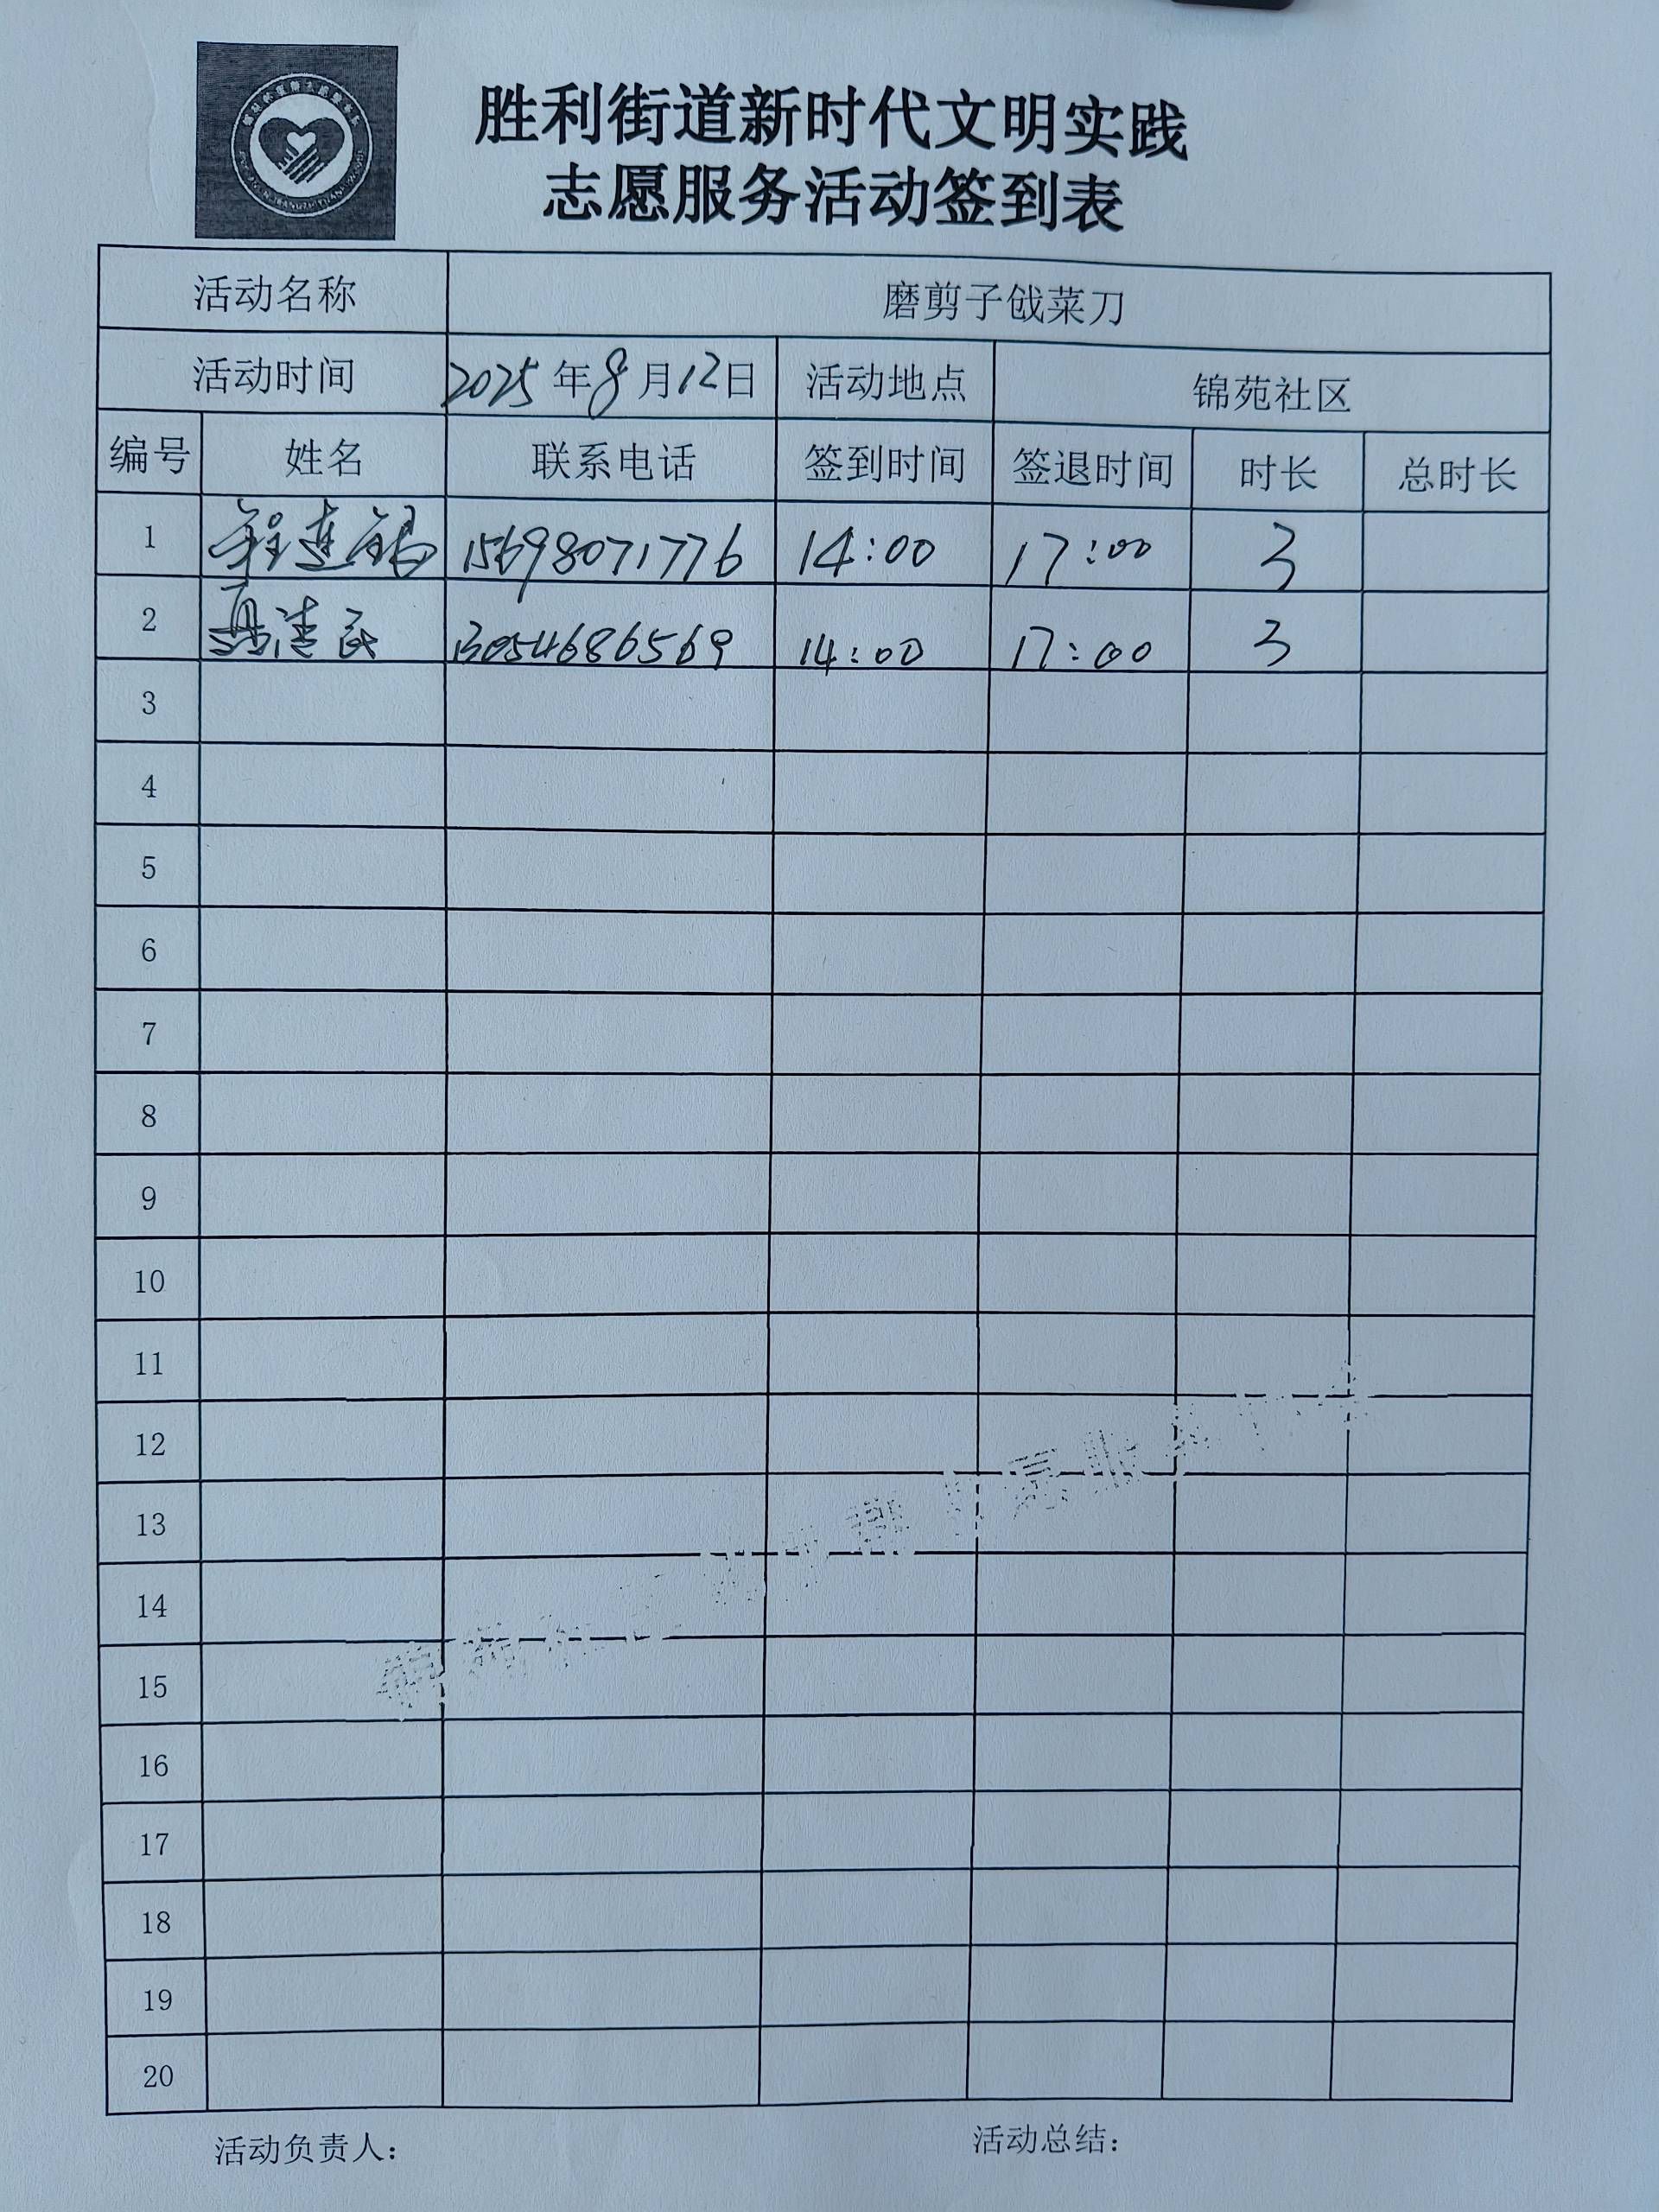 胜利街道新时代文明实践
志愿服务活动签到表
活动名称 磨剪子戗菜刀
活动时间 2025年8月12日 活动地点 锦苑社区
编号 姓名 联系电话 签到时间 签退时间 时长 总时长
1 程连银 15698071776 14:00 17:00 3
2 聂清民 13054686569 14:00 17:00 3
3
4
5
6
7
8
9
10
11
12
13
14
15
16
17
18
19
20
活动负责人： 活动总结：